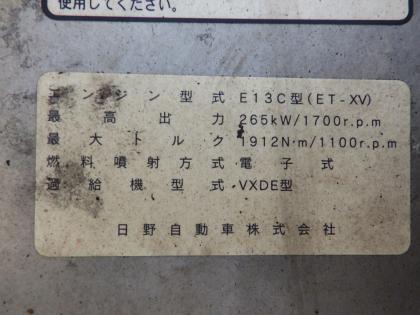 使用してください。
エンジン型式 E13C型(ET-XV)
最高出力 265kW/1700r.p.m
最大トルク 1912N·m/1100r.p.m
燃料噴射方式 電子式
過給機型式 VXDE型
日野自動車株式会社